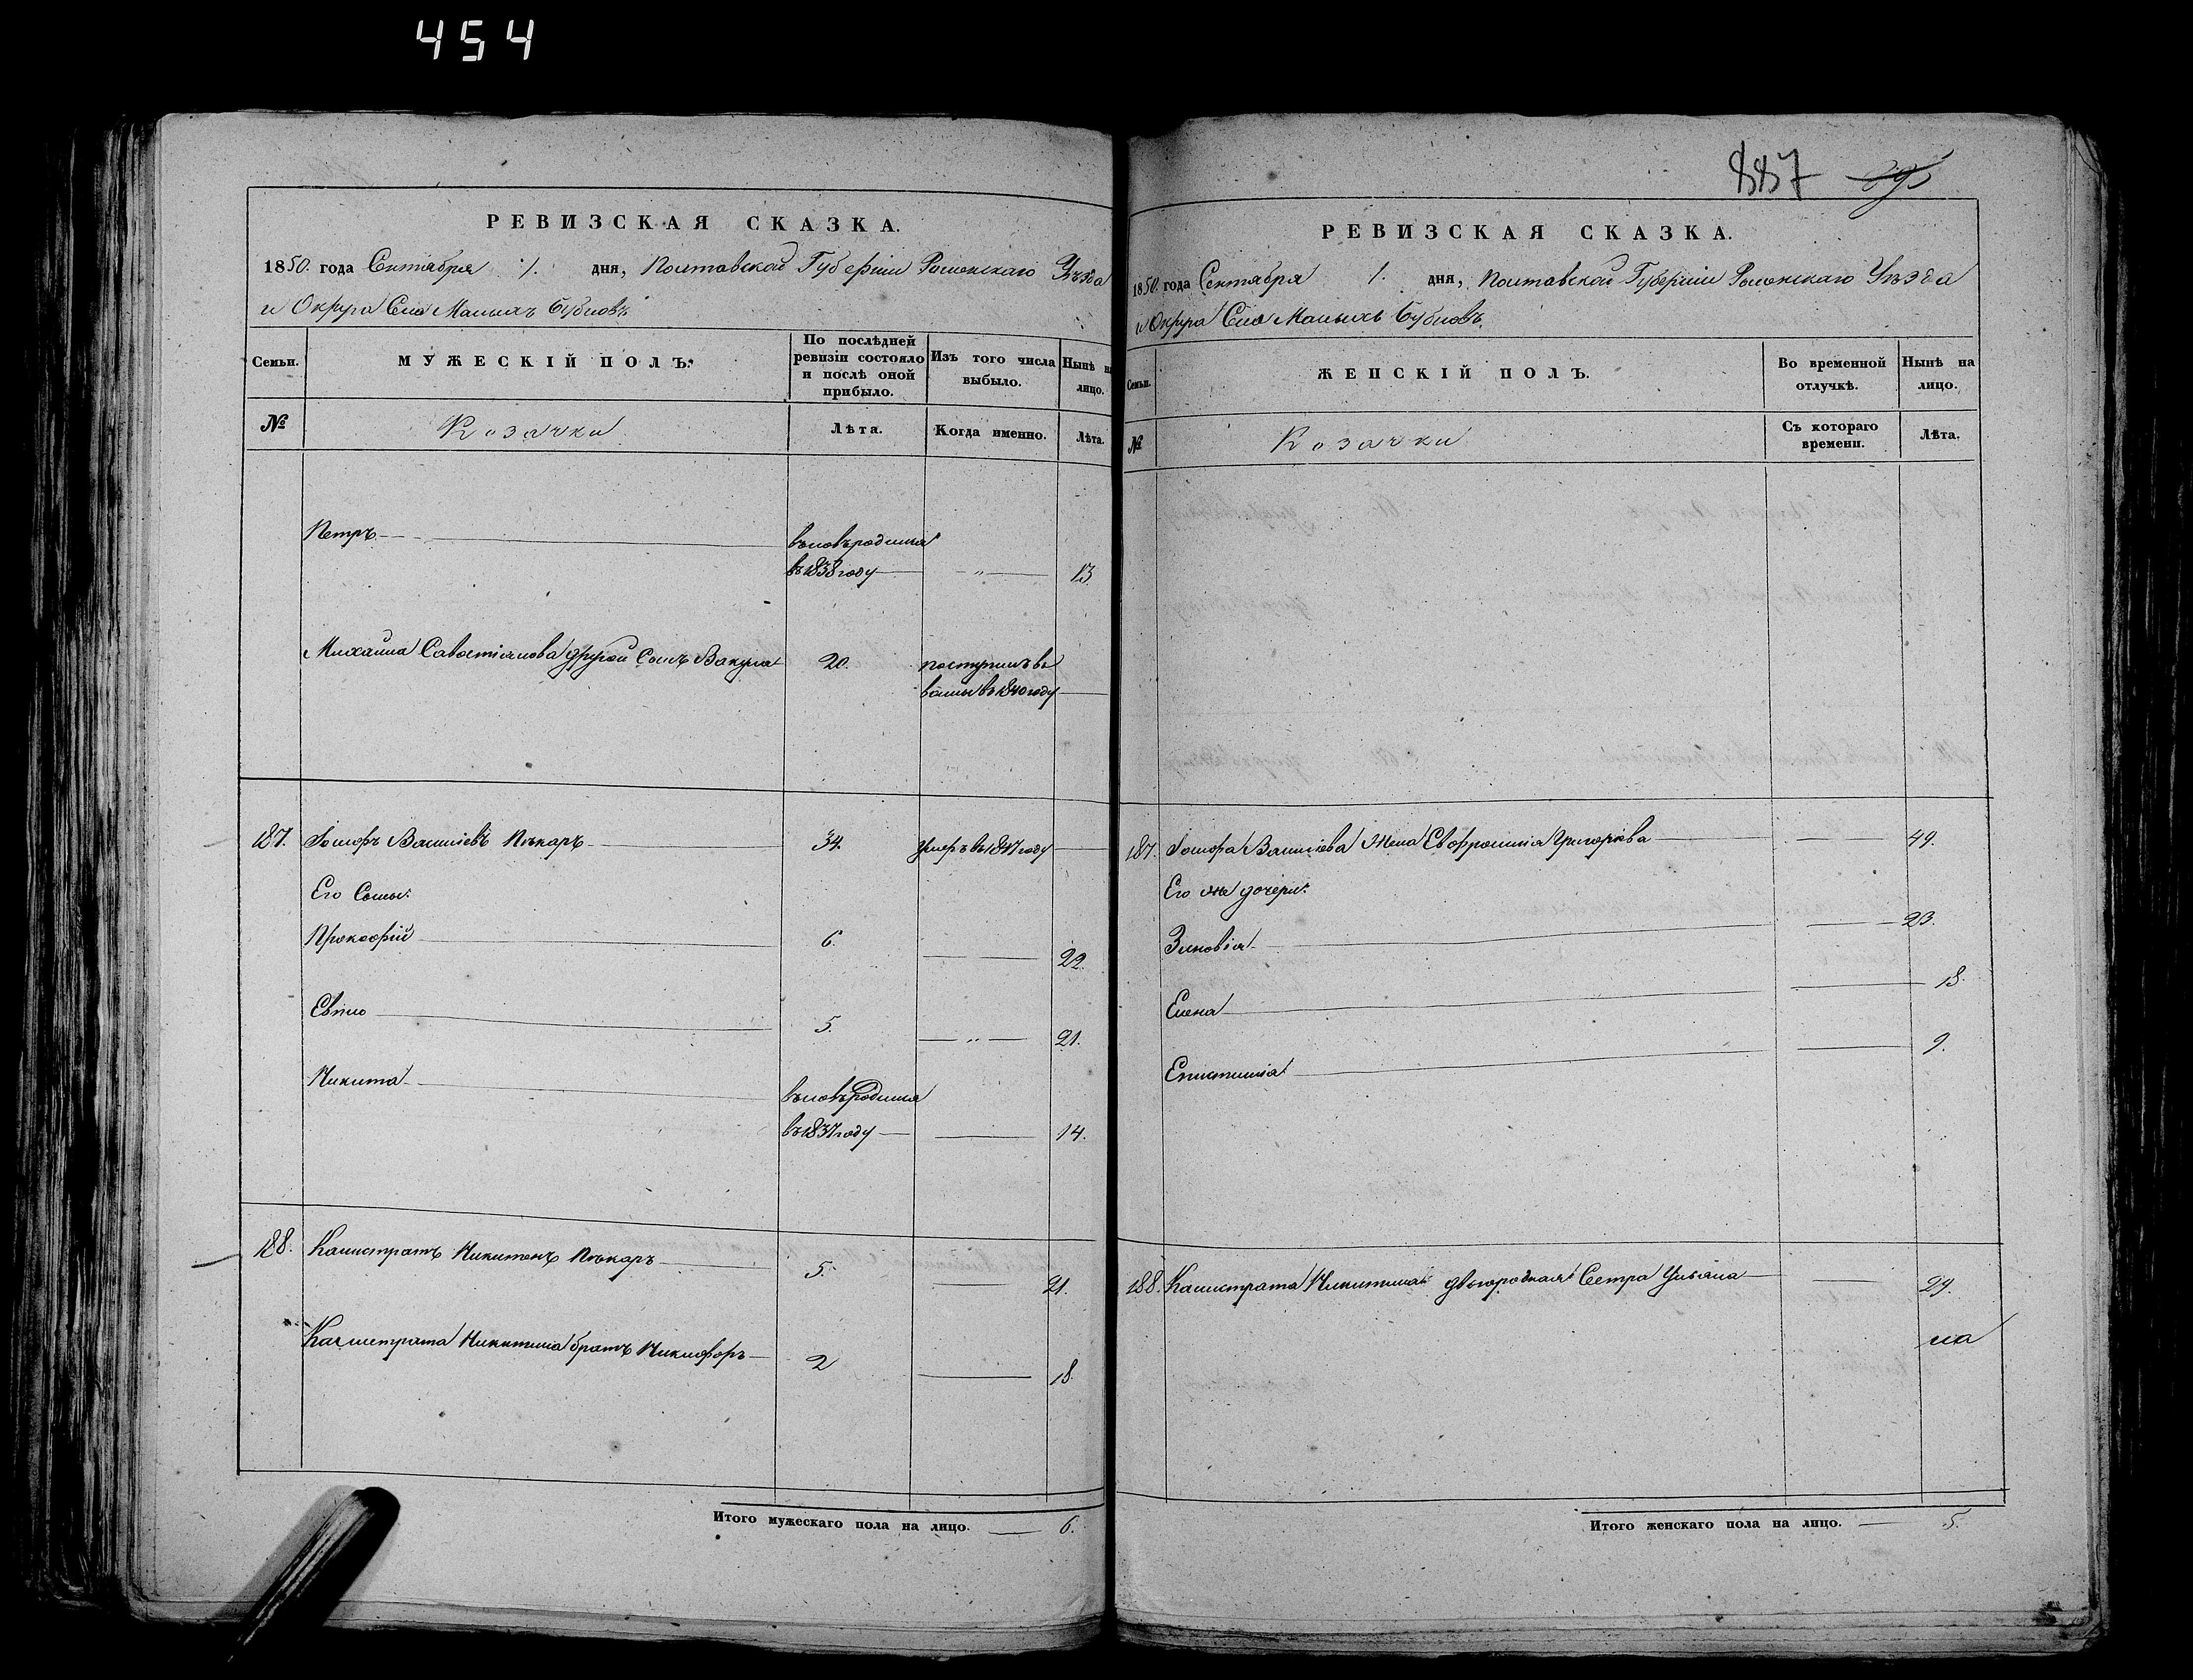 454
РЕВИЗСКАЯ СКАЗКА.
1850. года Сентября 1. дня, Полтавской Губерніи Роменскаго Уѣзда
и Округа Села Малыхъ Бубновъ
Семьи.
МУЖЕСКІЙ ПОЛЪ.
По послѣдней ревизіи состояло и послѣ оной прибыло.
Изъ того числа выбыло.
Нынѣ на лицо.
№
Козачки
Лѣта.
Когда именно.
Лѣта.
Петръ
вновь родился
въ 1838 году
13.
Михайла Савостіянова другой Сынъ Вакула
20.
поступилъ въ
въ 1840 году
187.
Іосифъ Василіевъ Пѣкаръ
34.
умеръ въ 1847 году
Его Сыны:
Прокофій
6.
22.
Евпло
5.
21.
Никита
вновь родился
въ 1837 году
14.
188.
Калистратъ Никитенъ Пѣкаръ
5.
21.
Калистрата Никитина братъ Никифоръ
2
18.
Итого мужескаго пола на лицо.
6.
887
РЕВИЗСКАЯ СКАЗКА.
1850. года Сентября 1. дня, Полтавской Губерніи Роменскаго Уѣзда
и Округа Села Малыхъ Бубновъ.
Семьи.
ЖЕНСКІЙ ПОЛЪ.
Во временной отлучкѣ.
Нынѣ на лицо.
№
Козачки
Съ котораго времени.
Лѣта.
187.
Іосифа Василіева Жена Евфросинія Григорѣва
49.
Его же дочери:
Зиновія
23.
Елена
18.
Епистинія
9.
188.
Калистрата Никитина двоюродная Сестра Уліяна
29.
на
Итого женскаго пола на лицо.
5.